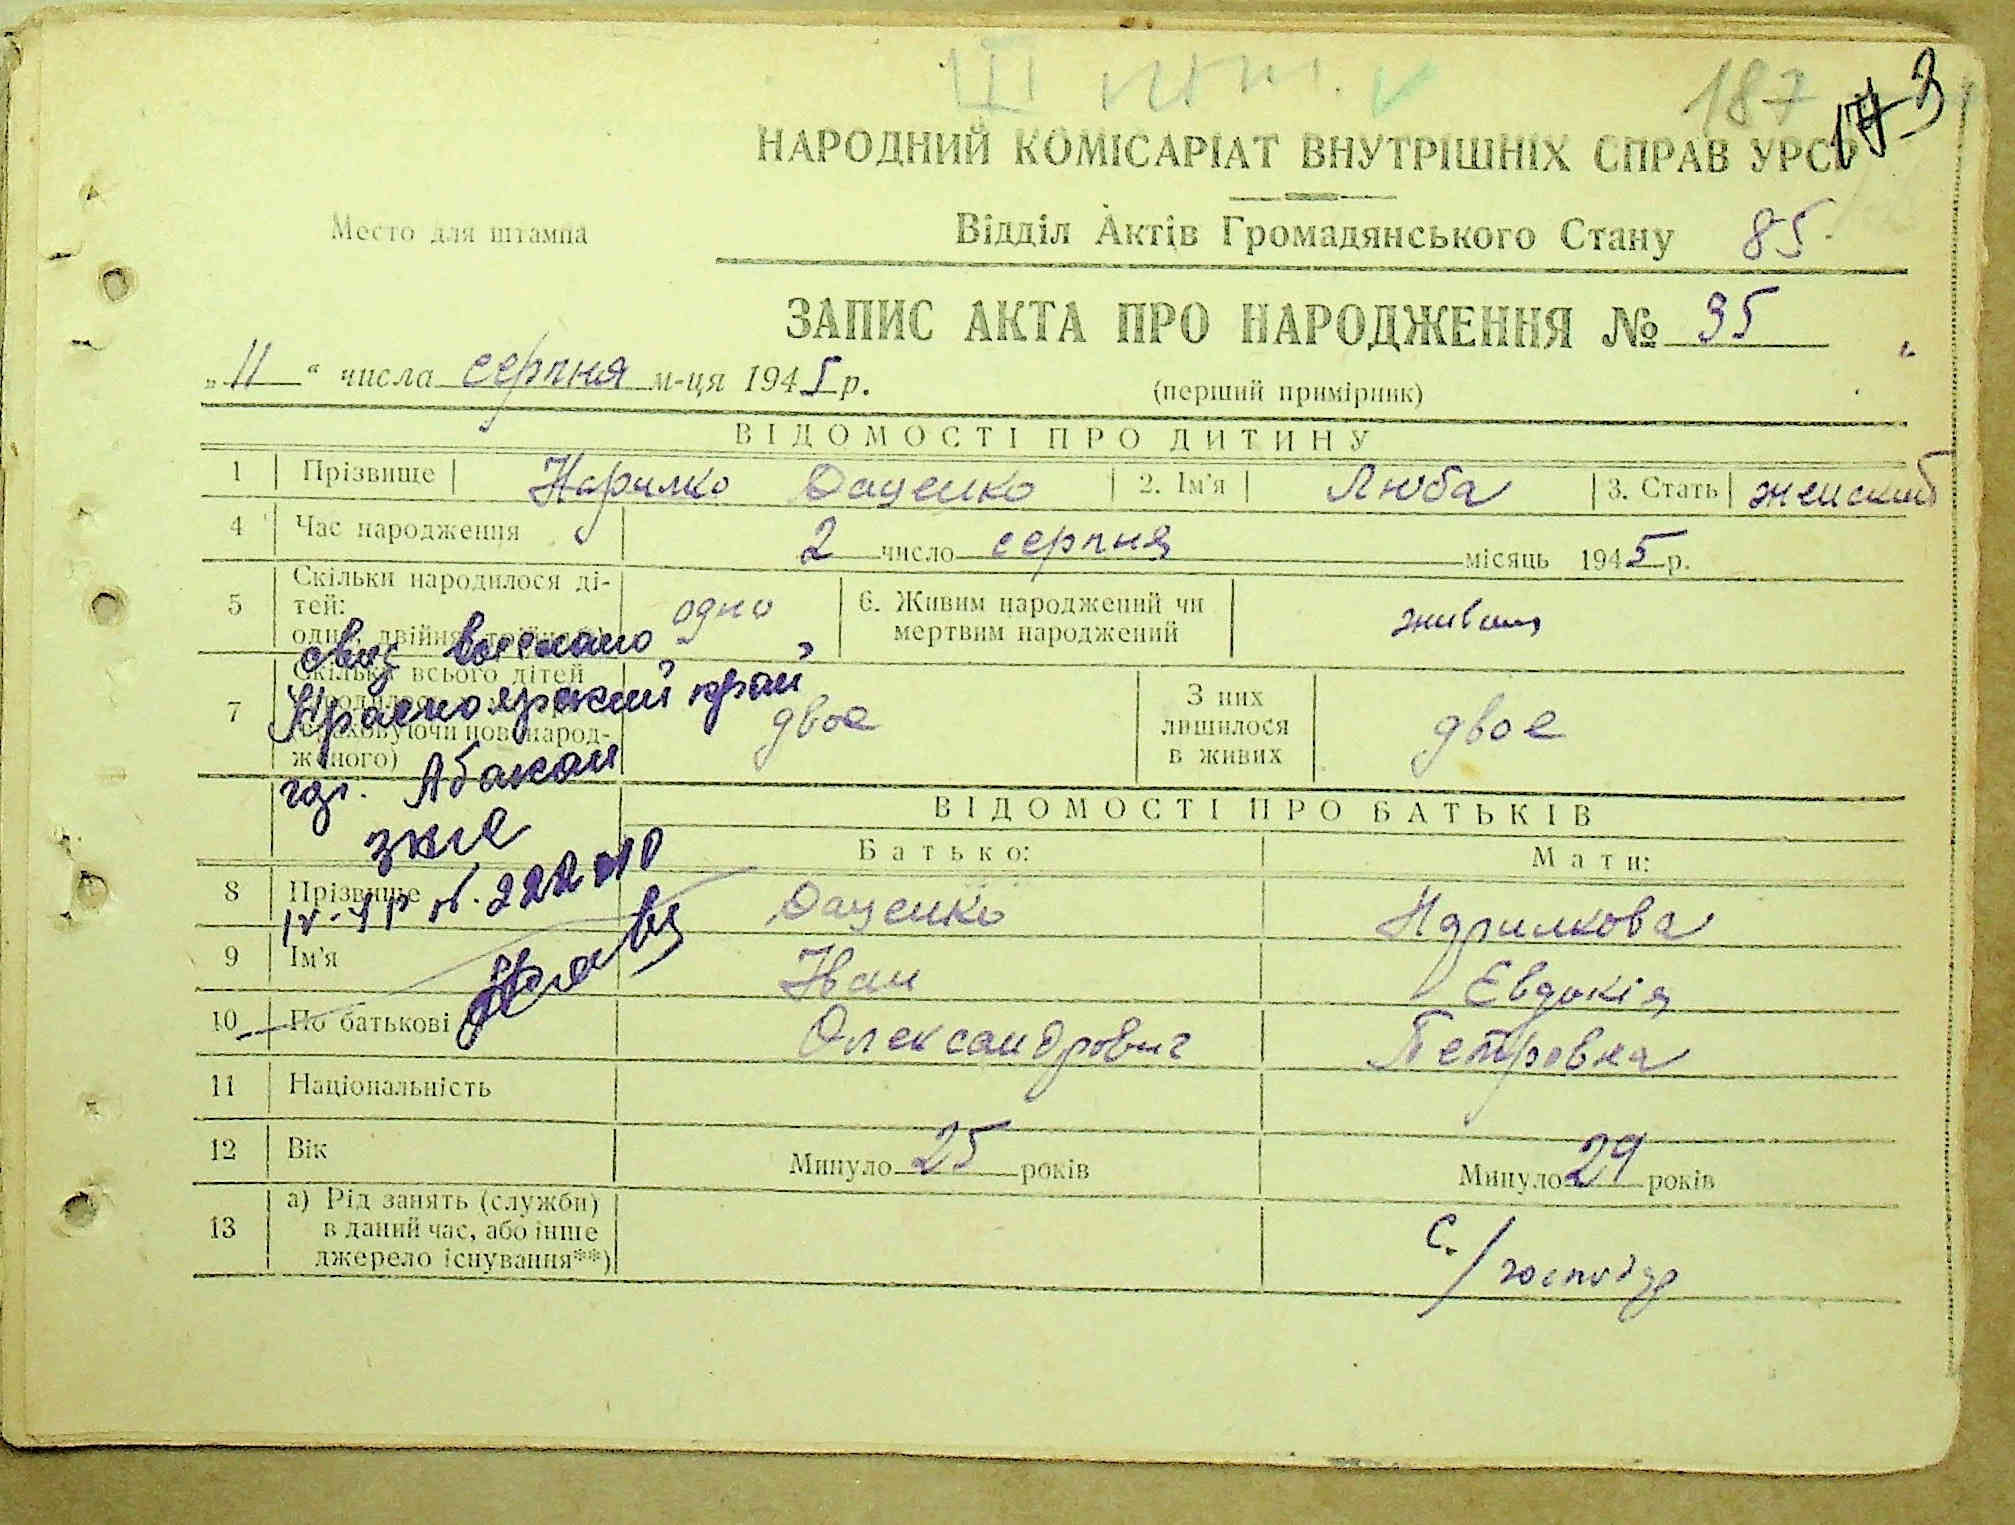 187
НАРОДНИЙ КОМІСАРІАТ ВНУТРІШНІХ СПРАВ УРСР
Место для штампа
Відділ Актів Громадянського Стану 85
ЗАПИС АКТА ПРО НАРОДЖЕННЯ № 35
„11“ числа серпня м-ця 1945 р.
(перший примірник)
ВІДОМОСТІ ПРО ДИТИНУ
1 Прізвище Даценко 2. Ім'я Люба 3. Стать женский
4 Час народження 2 число серпня місяць 1945 р.
5 Скільки народилося ді-
тей:
одно
6. Живим народжений чи
мертвим народжений
живим
7 Скільки всього дітей
(враховуючи новонарод-
женого)
двое
З них
лишилося
в живих
двое
Красноярский край
Абакан
ВІДОМОСТІ ПРО БАТЬКІВ
Батько: Мати:
8 Прізвище Даценко
9 Ім'я Иван Евдокія
10 По батькові Олександрович Петровна
11 Національність
12 Вік Минуло 25 років Минуло 29 років
13 а) Рід занять (служби)
в даний час, або інше
джерело існування**)
с./господар